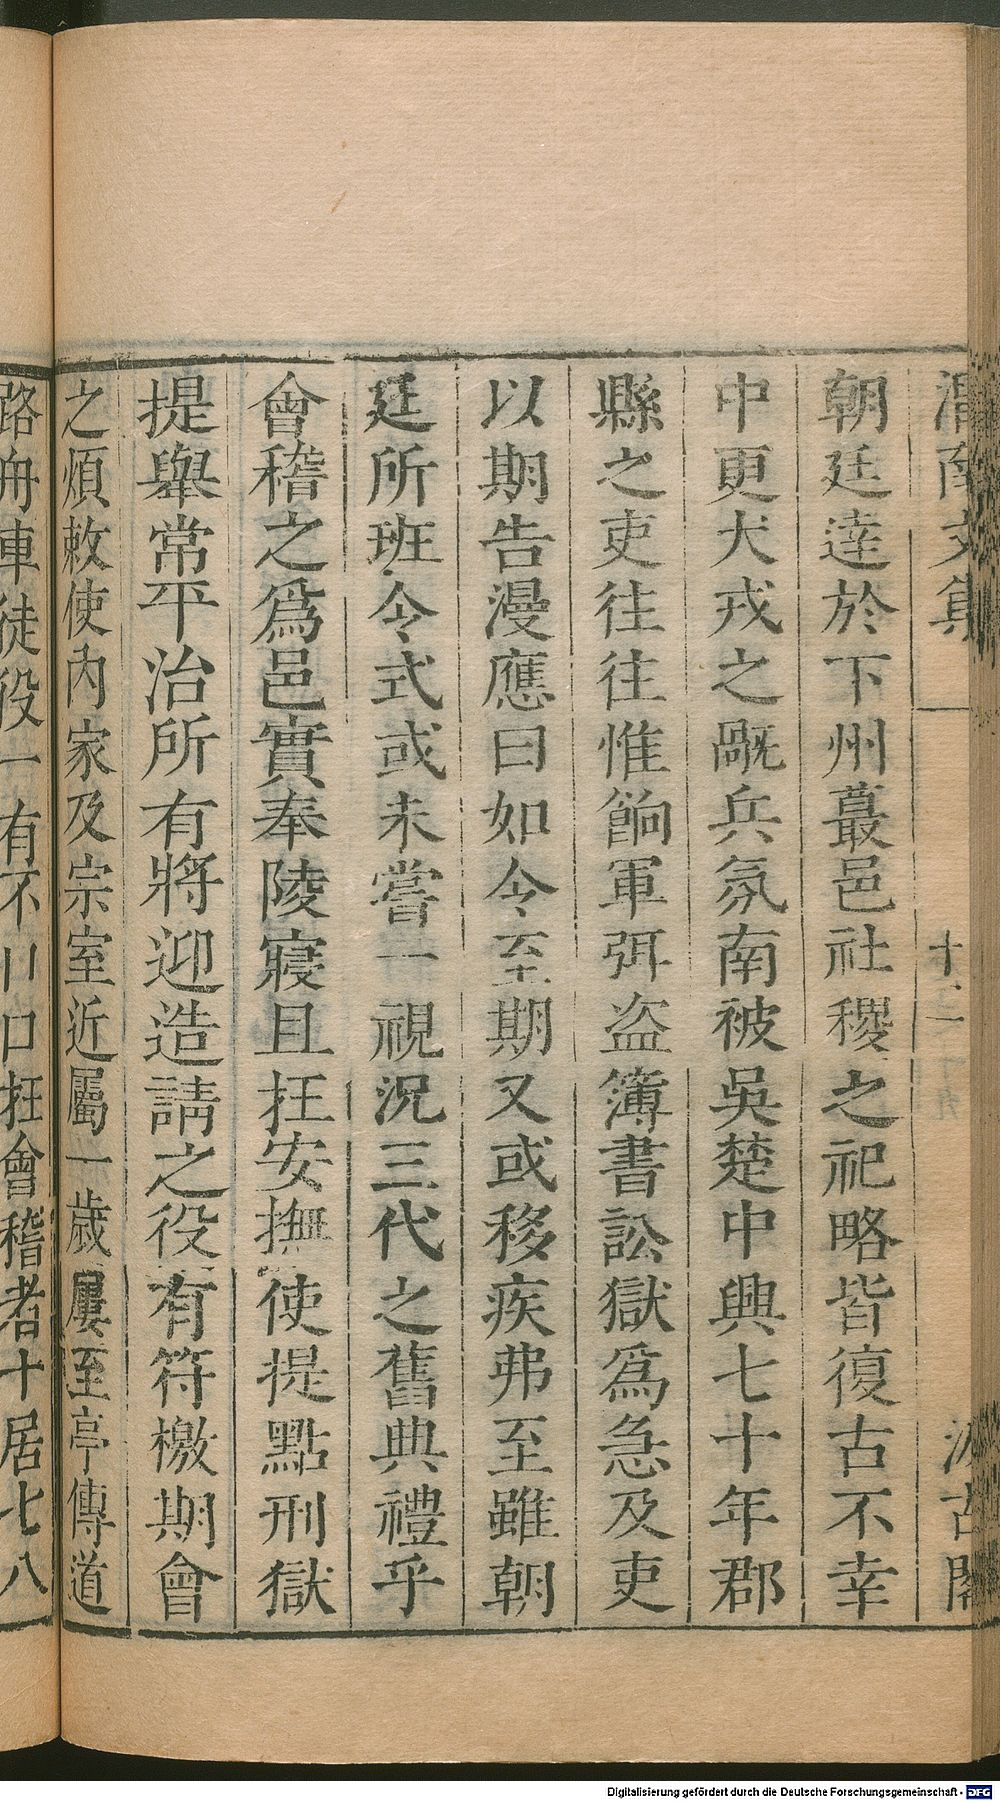 渭南文集 十二 汲古閣
朝廷達於下州蕞邑社稷之祀略皆復古不幸
中更犬戎之𧞷兵氛南被吳楚中興七十年郡
縣之吏徃徃惟餉軍弭盜簿書訟獄爲急及吏
以期告漫應曰如令至期又或移疾弗至雖朝
廷所班令式或未嘗一視況三代之舊典禮乎
會稽之爲邑實奉陵寢且在安撫使提點刑獄
提舉常平治所有將迎造請之役有符檄期會
之煩敕使內家及宗室近屬一歲屢至亭傳道
路舟車徒役一有不口在會稽者十居七八
Digitalisierung gefördert durch die Deutsche Forschungsgemeinschaft - DFG